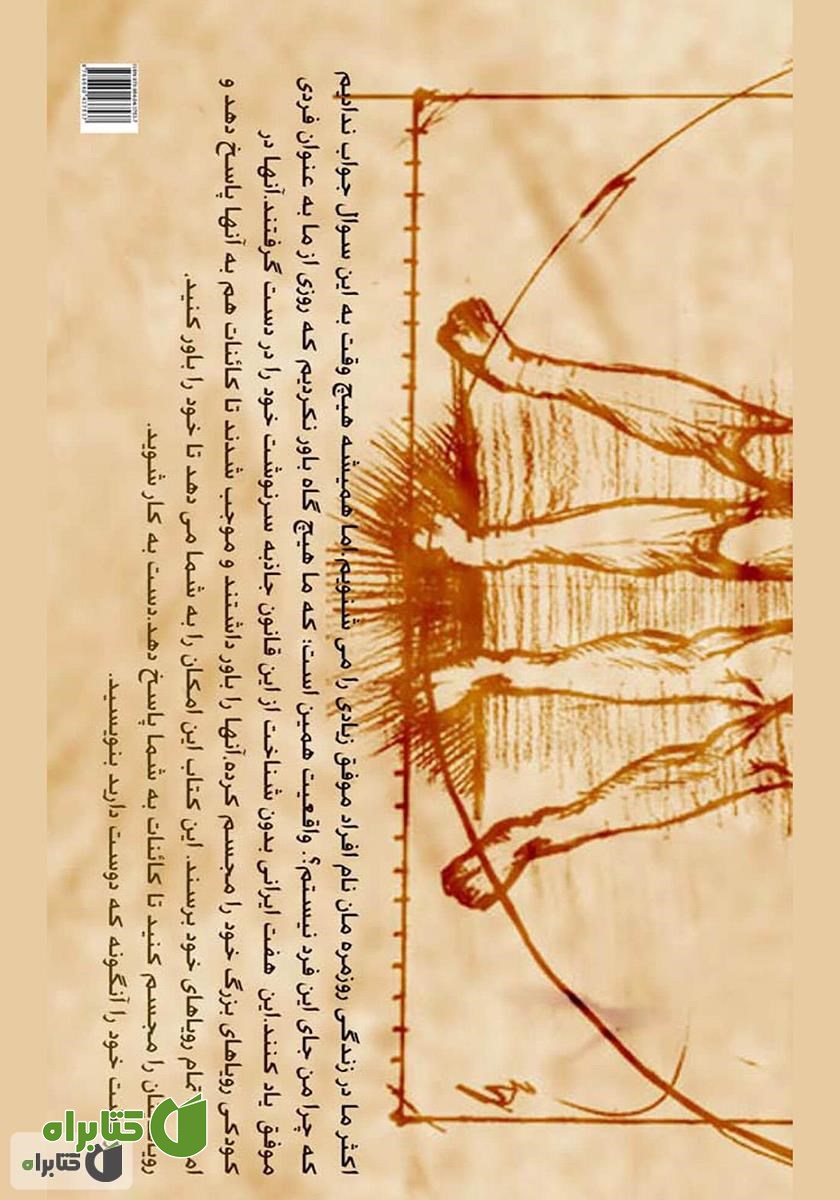 اکثر ما در زندگی روزمره مان نام افراد موفق زیادی را می شنویم.اما همیشه هیچ وقت به این سوال جواب ندادیم
که چرا من جای این فرد نیستم؟. واقعیت همین است؛ که ما هیچ گاه باور نکردیم که روزی از ما به عنوان فردی
موفق یاد کنند.این هفت ایرانی بدون شناخت از این قانون جاذبه سرنوشت خود را در دست گرفتند.آنها در
کودکی رویاهای بزرگ خود را مجسم کرده.آنها را باور داشتند و موجب شدند تا کائنات هم به آنها پاسخ دهد و
تمام رویاهای خود برسند. این کتاب این امکان را به شما می دهد تا خود را باور کنید.
را مجسم کنید تا کائنات به شما پاسخ دهد.دست به کار شوید.
خود را آنگونه که دوست دارید بنویسید.
کتابراه
کتابراه